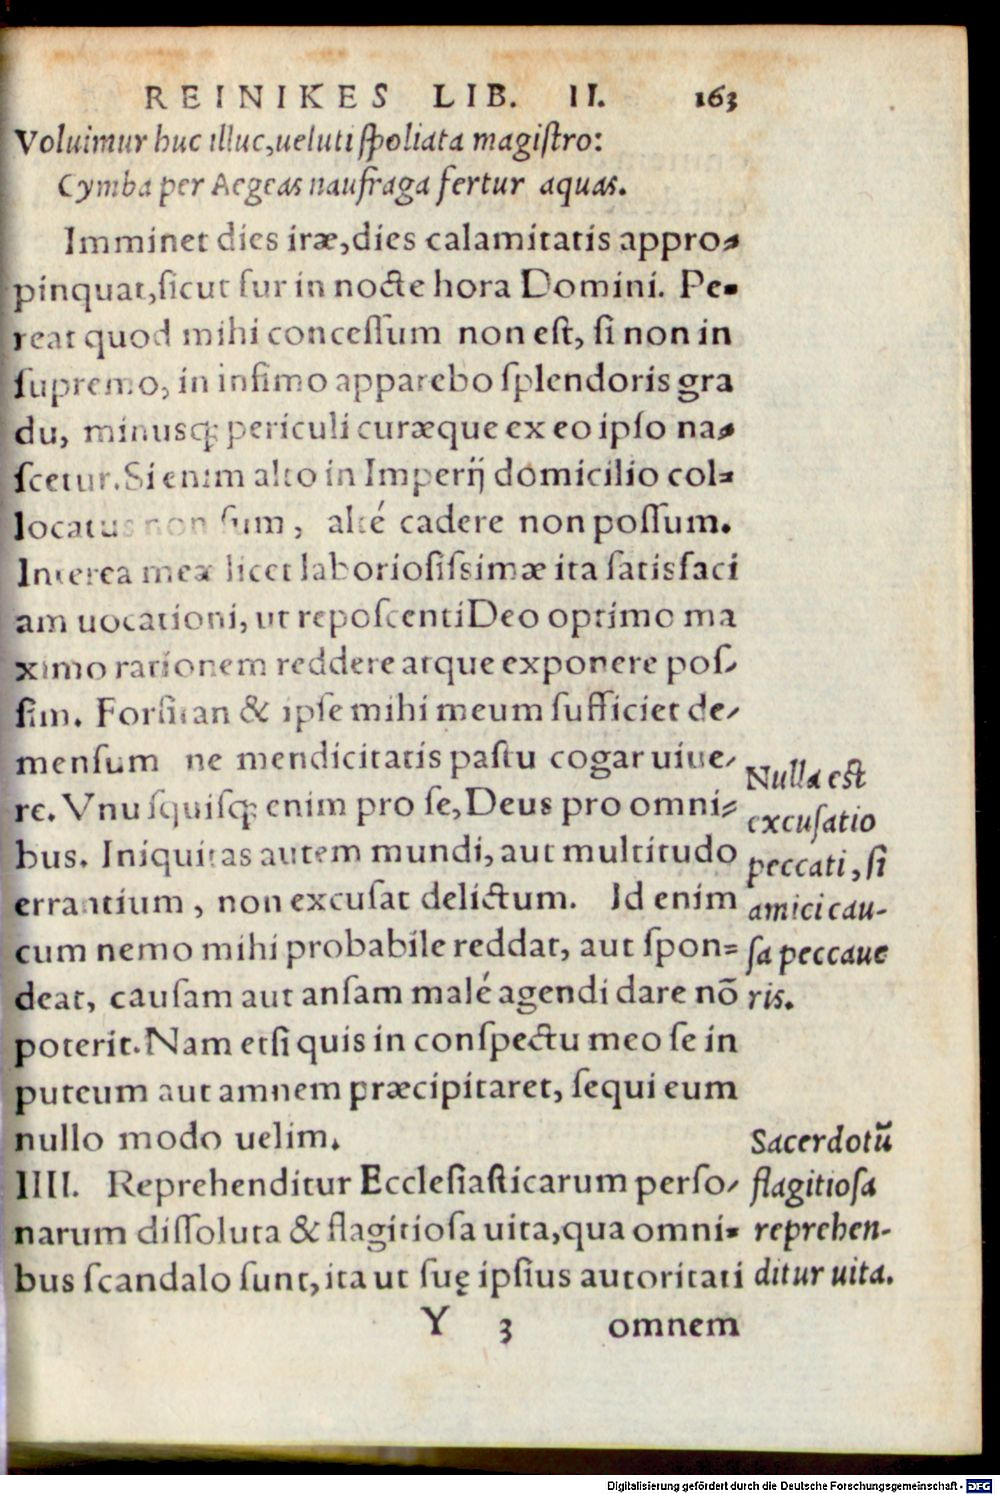 REINIKES LIB. II. 163
Voluimur huc illuc,ueluti ſpoliata magiſtro:
Cymba per Aegeas naufraga fertur aquas.
Imminet dies iræ,dies calamitatis appro-
pinquat,ſicut fur in nocte hora Domini. Pe-
reat quod mihi conceſſum non eſt, ſi non in
ſupremo, in infimo apparebo ſplendoris gra
du, minusq; periculi curæque ex eo ipſo na-
ſcetur.Si enim alto in Imperij domicilio col-
locatus non ſum, alté cadere non poſſum.
Interea meæ licet laborioſiſsimæ ita ſatisfaci
am uocationi, ut repoſcenti Deo optimo ma
ximo rationem reddere atque exponere poſ-
ſim. Forſitan & ipſe mihi meum ſufficiet de-
menſum ne mendicitatis paſtu cogar uiue-
re. Vnuſquiſq; enim pro ſe,Deus pro omni-
bus. Iniquitas autem mundi, aut multitudo
errantium, non excuſat delictum. Id enim
cum nemo mihi probabile reddat, aut ſpon=
deat, cauſam aut anſam malé agendi dare nõ
poterit.Nam etſi quis in conſpectu meo ſe in
puteum aut amnem præcipitaret, ſequi eum
nullo modo uelim.
IIII. Reprehenditur Eccleſiaſticarum perſo-
narum diſſoluta & flagitioſa uita,qua omni-
bus ſcandalo ſunt,ita ut ſuę ipſius autoritati
Nulla eſt
excuſatio
peccati, ſi
amici cau-
ſa peccaue
ris.
Sacerdotũ
flagitioſa
reprehen-
ditur uita.
Y 3 omnem
Digitalisierung gefördert durch die Deutsche Forschungsgemeinschaft - DFG